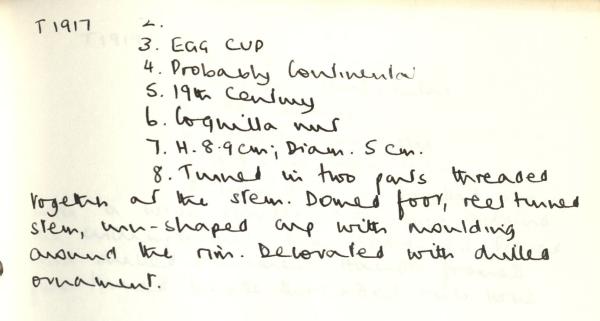 T 1917 2.
3. EGG CUP
4. Probably Continental
5. 19th Century
6. Coquilla nut
7. H. 8.9cm; Diam. 5 cm.
8. Turned in two parts threaded
together at the stem. Domed foot, reel turned
stem, urn-shaped cup with moulding
around the rim. Decorated with drilled
ornament.